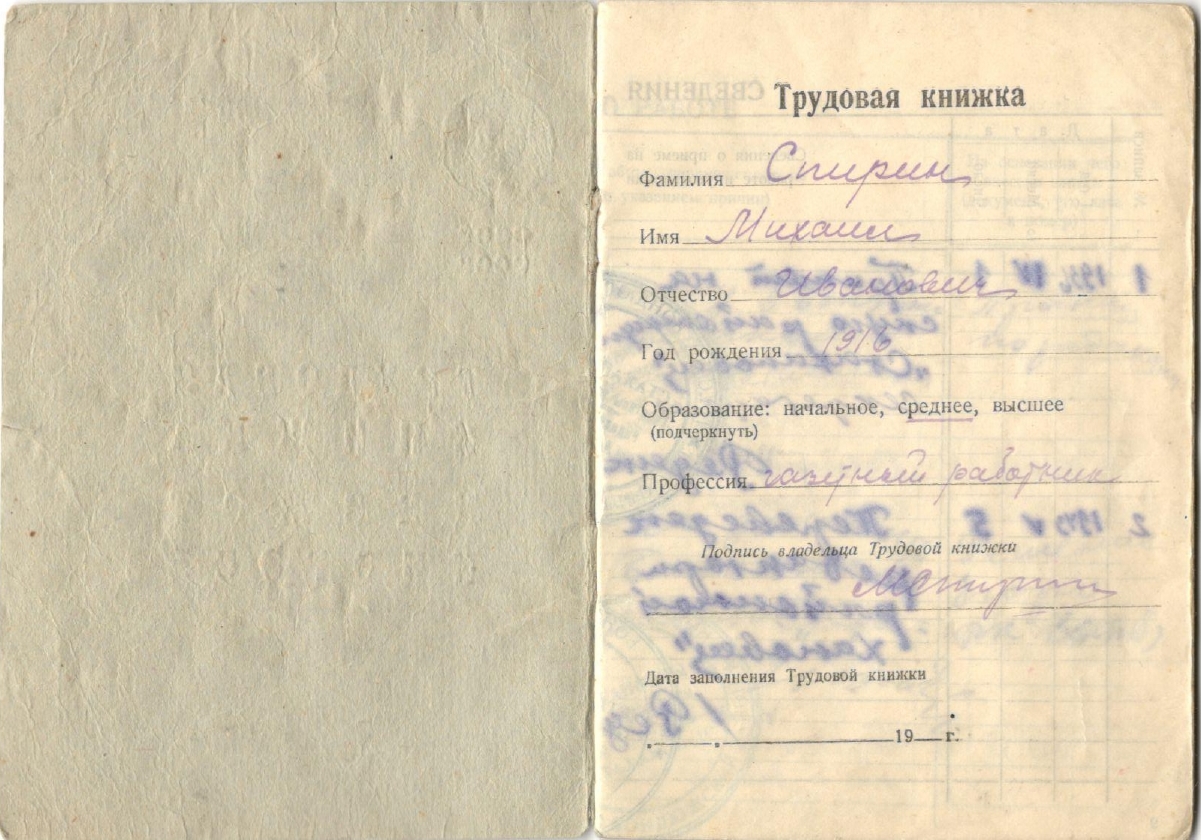 Трудовая книжка
Фамилия Спирин
Имя Михаил
Отчество Иванович
Год рождения 1916
Образование: начальное, среднее, высшее
(подчеркнуть)
Профессия газетный работник
Подпись владельца Трудовой книжки
МСпирин
Дата заполнения Трудовой книжки
19 г.